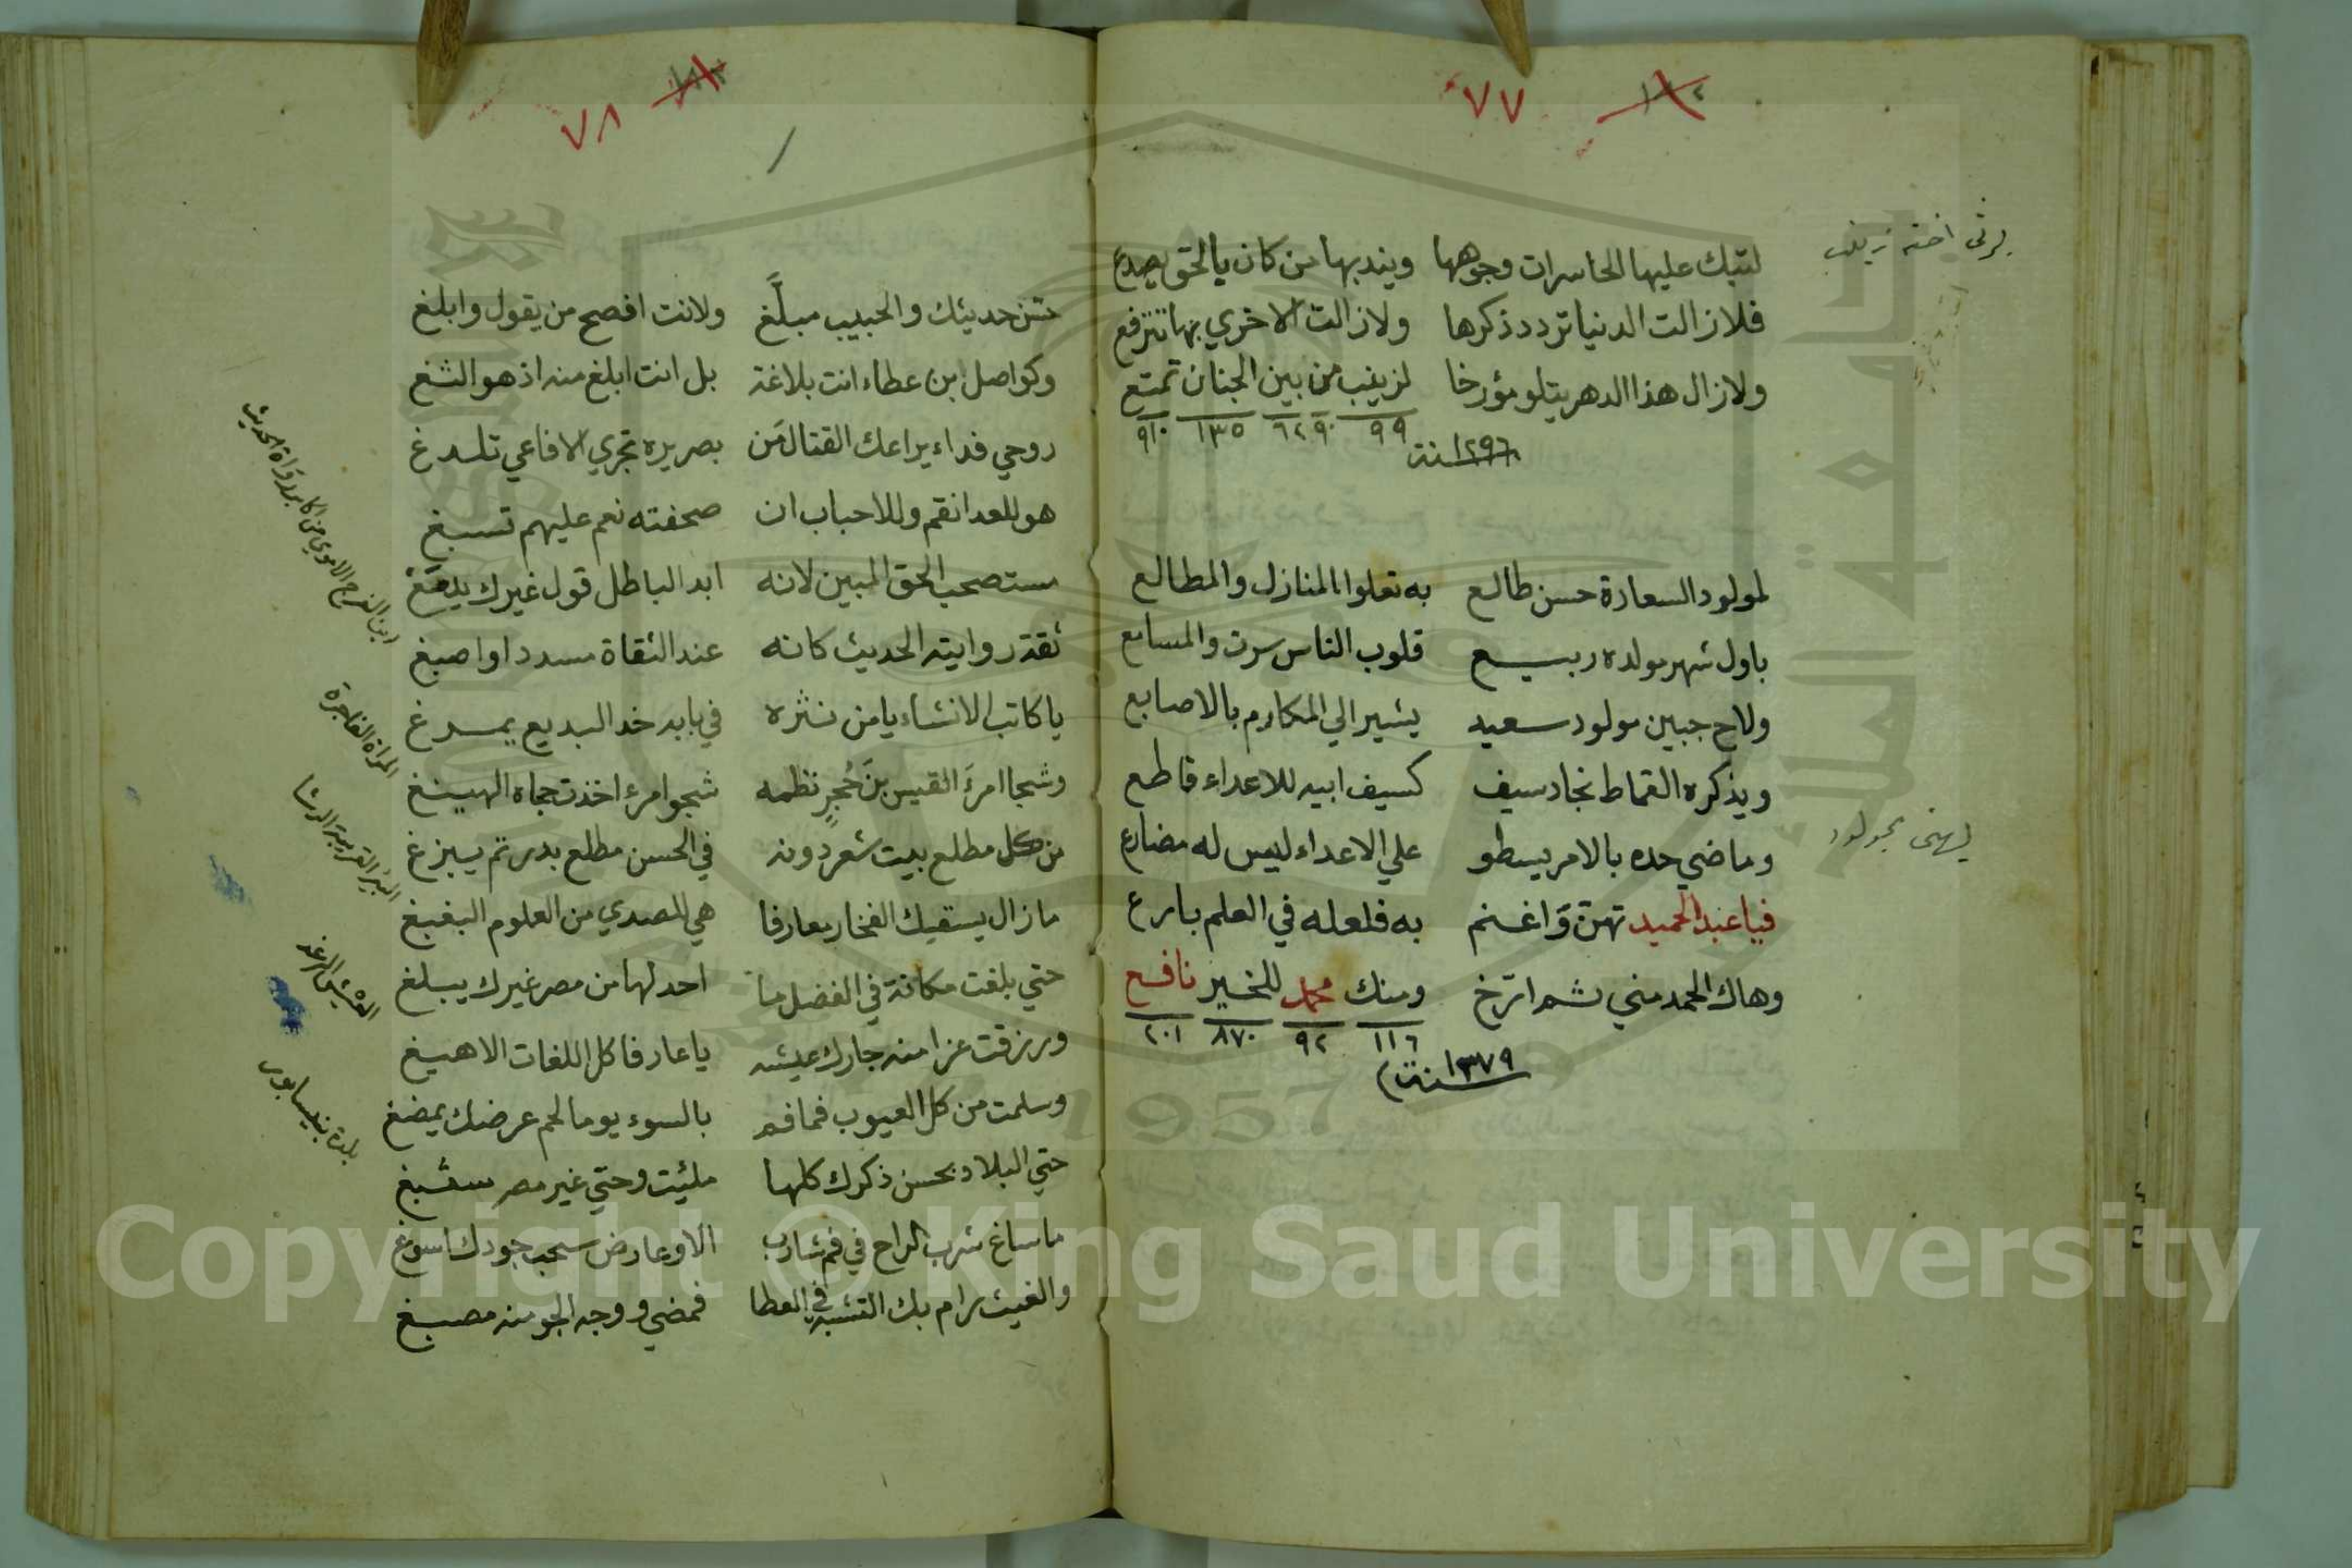 ٧٧
يرثى اخته زينب
لتبك عليها الحاسرات وجوهها ويندبها من كان بالحق يصدع
فلا زالت الدنيا تردد ذكرها ولا زالت الاخري بها تترفع
ولا زال هذا الدهر يتلو مؤرخا لزينب من بين الجنان تمتع
٩٩ ٩٠ ٦٢ ١٣٥ ٩١٠
سنة ١٢٩٦
لمولود السعادة حسن طالع به تعلوا المنازل والمطالع
باول شهر مولده ربيع قلوب الناس سرت والمسامع
ولاح جبين مولود سعيد يشير الي المكارم بالاصابع
ويذكره القماط نجاد سيف كسيف ابيه للاعداء قاطع
يهنى بمولود
وماضي حده بالامر يسطو علي الاعداء ليس له مضارع
فيا عبد الحميد تهنّ وَاغنم به فلعله في العلم بارع
وهاك الحمد مني ثم ارّخ ومنك محمد للخير نافع
١١٦ ٩٢ ٨٧٠ ٢٠١
سنة ١٣٧٩
٧٨
حديثك والحبيب مبلَّغ ولانت افصح من يقول وابلغ
وكواصل ابن عطاء انت بلاغة بل انت ابلغ منه اذ هو الثغ
روحي فداء يراعك القتال مَن بصريره تجري الافاعي تلدغ
هو للعدا نقم وللاحباب ان صحفته نعم عليهم تسبغ
مستصحب الحق المبين لانه ابد الباطل قول غيرك يدمغ
ابن الفرج الاموي من اكابر رواة الحديث
ثقة روايته الحديث كانه عند الثقاة مسدد او اصبغ
يا كاتب الانشاء يا من نثره في بابه خد البديع يمرغ
المرأة الفاجرة
وشجا امرءَ القيس بنَ حُجرٍ نظمه شجوا امرء اخذت حجاه الهينغ
من كل مطلع بيت شعر دونه في الحسن مطلع بدر تم يبزغ
البئر القريبة الرشا
ما زال يسقيك الفخار معارفا هي للصدي من العلوم البغبغ
حتي بلغت مكانة في الفضل ما احد لها من مصر غيرك يبلغ
ورزقت عزا منه جارك عيشه يا عارفا كل اللغات الاهيغ
وسلمت من كل العيوب فما فم بالسوء يوما لحم عرضك يمضغ
بلدة بنيسابور
حتي البلاد بحسن ذكرك كلها ملئيت وحتي غير مصر
ما ساغ شرب الراح في فم شارب الا وعارض سحب جودك اسوغ
والغيث رام بك التشبه في العطا فمضي ووجه الجو منه مصبغ
Copyright © King Saud University
1957